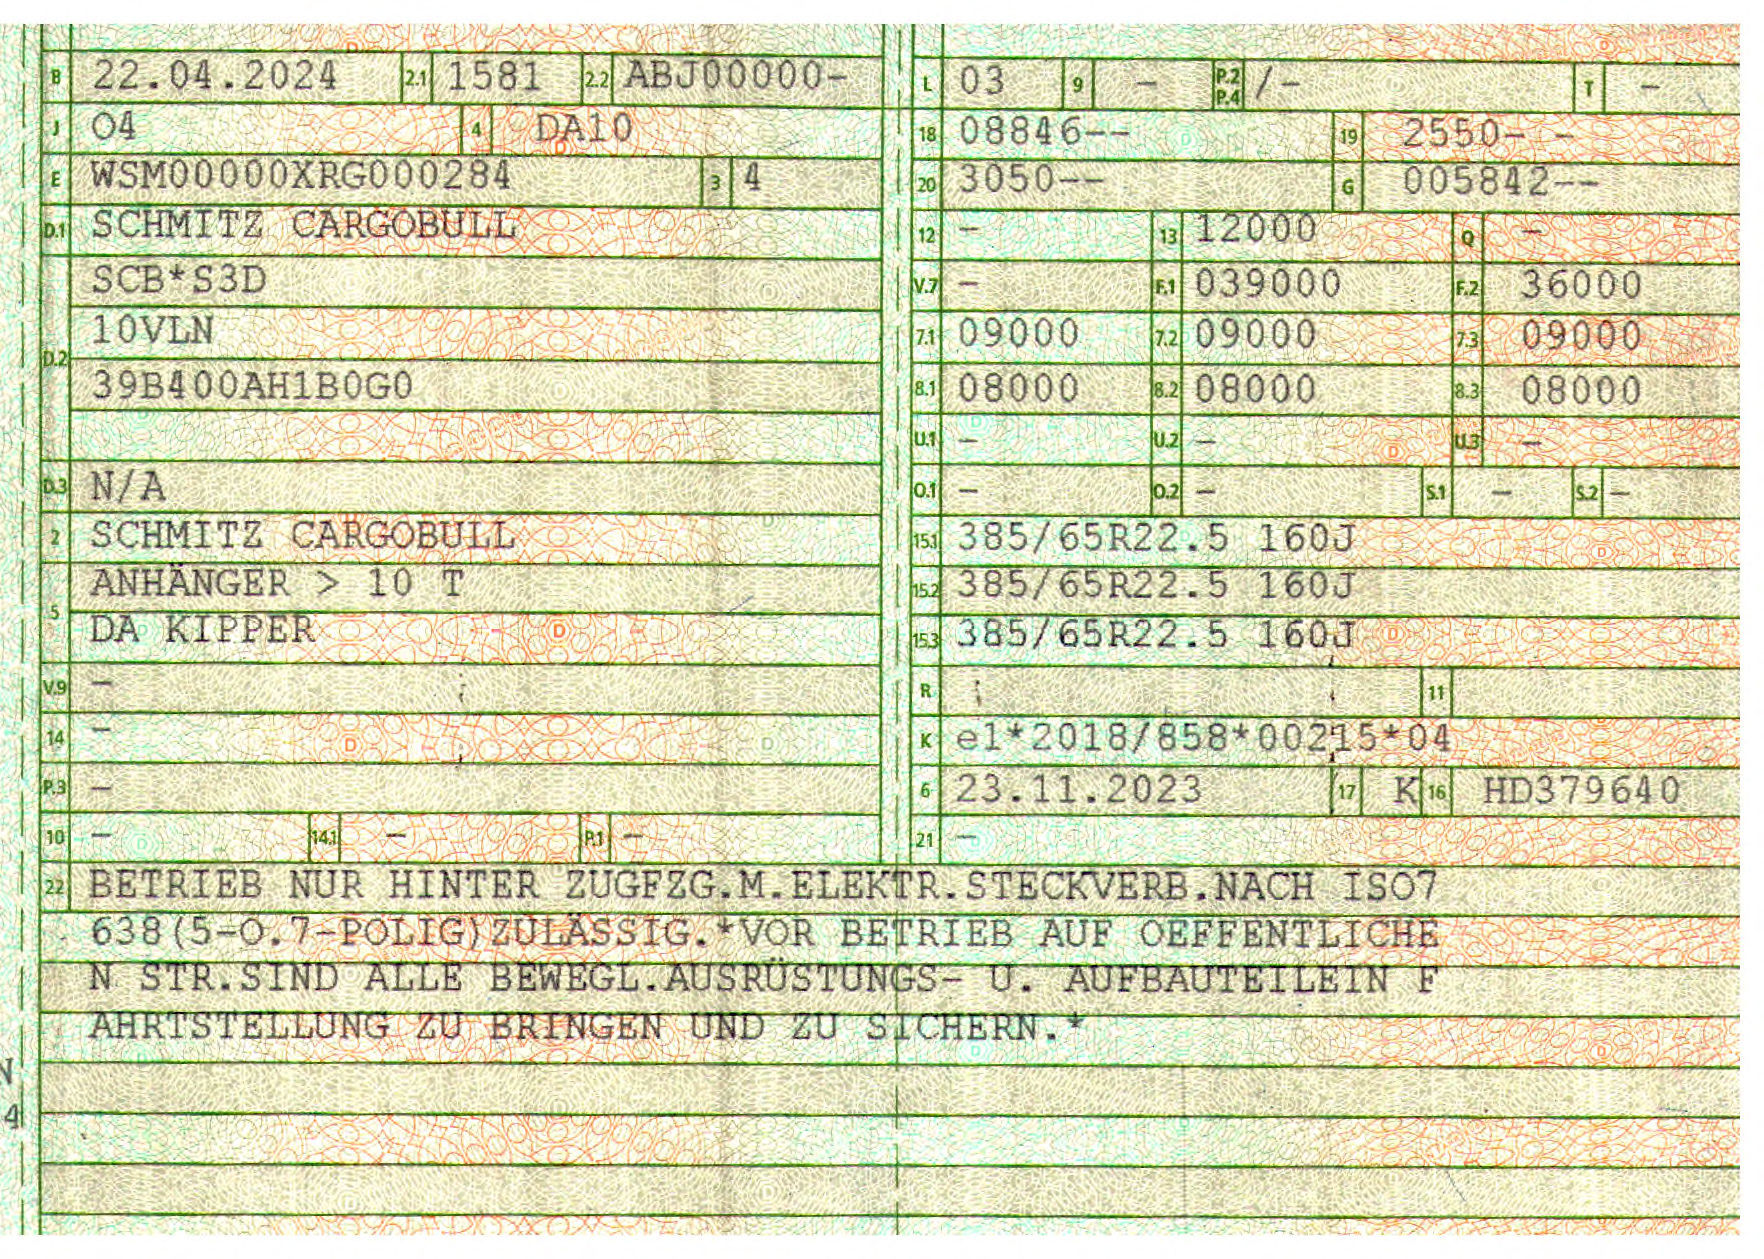 B 22.04.2024 2.1 1581 2.2 ABJ00000-
J O4 4 DA10
E WSM00000XRG000284 3 4
D.1 SCHMITZ CARGOBULL
SCB*S3D
D.2 10VLN
39B400AH1B0G0
D.3 N/A
2 SCHMITZ CARGOBULL
5 ANHÄNGER > 10 T
DA KIPPER
V.9 -
14 -
P.3 -
10 - 14.1 - P.1 -
L 03 9 - P.2 P.4 /- T -
18 08846-- 19 2550- -
20 3050-- G 005842--
12 - 13 12000 Q -
V.7 - F.1 039000 F.2 36000
7.1 09000 7.2 09000 7.3 09000
8.1 08000 8.2 08000 8.3 08000
U.1 - U.2 - U.3 -
O.1 - O.2 - S.1 - S.2 -
15.1 385/65R22.5 160J
15.2 385/65R22.5 160J
15.3 385/65R22.5 160J
R 11
K e1*2018/858*00215*04
6 23.11.2023 17 K 16 HD379640
21 -
22 BETRIEB NUR HINTER ZUGFZG.M.ELEKTR.STECKVERB.NACH ISO7
638(5-O.7-POLIG)ZULÄSSIG.*VOR BETRIEB AUF OEFFENTLICHE
N STR.SIND ALLE BEWEGL.AUSRÜSTUNGS- U. AUFBAUTEILEIN F
AHRTSTELLUNG ZU BRINGEN UND ZU SICHERN.*
N
4